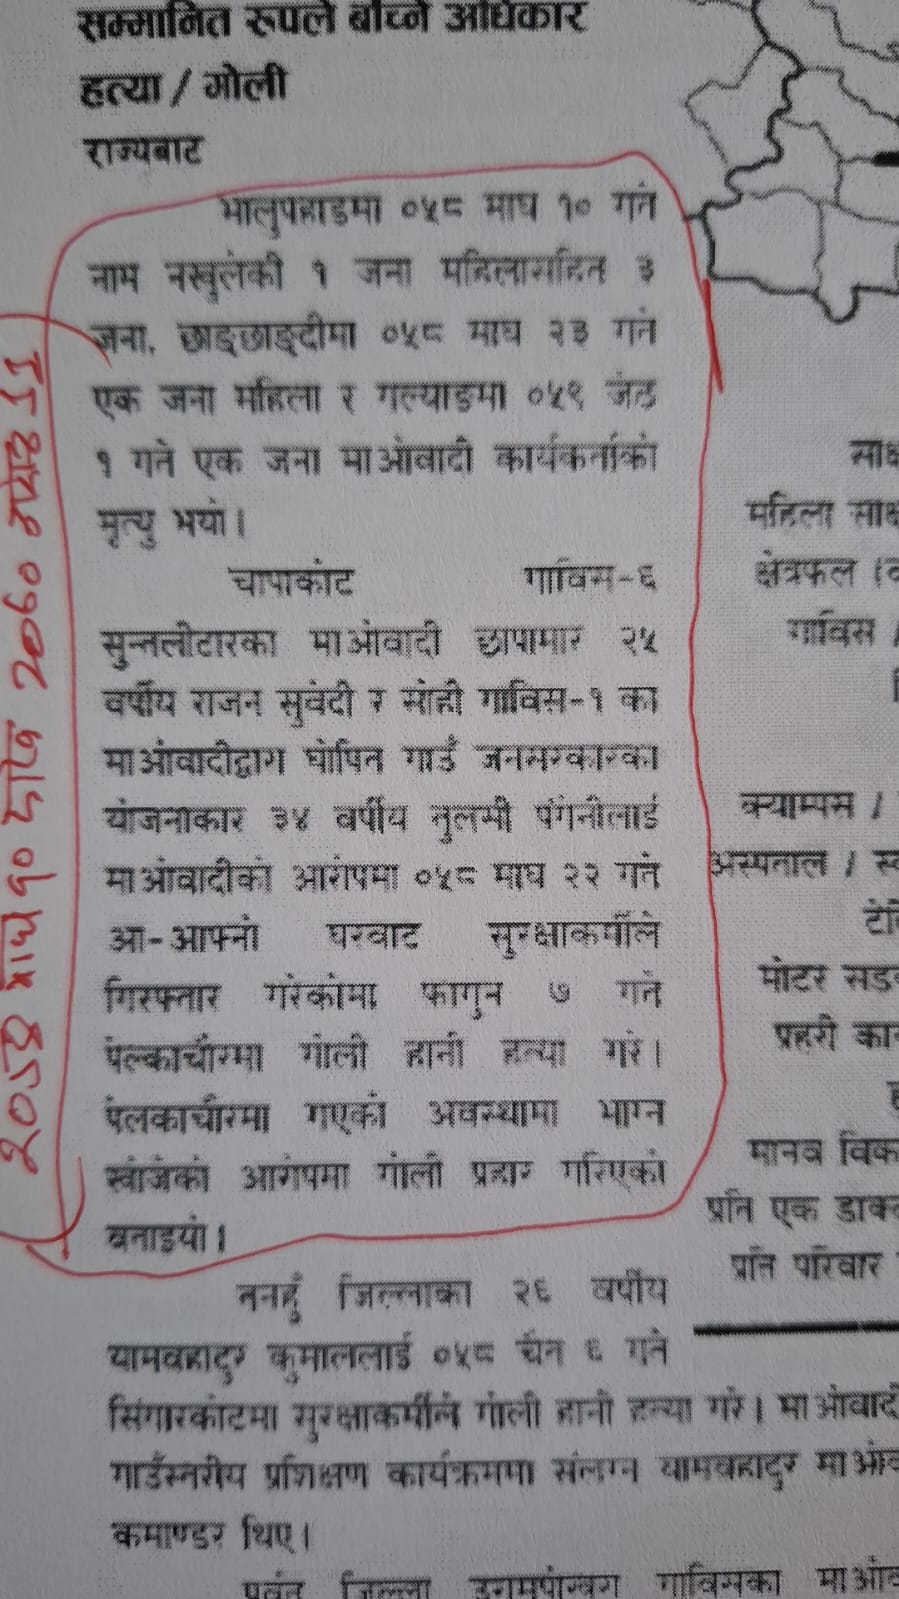 सम्मानित रुपले बाँच्ने अधिकार
हत्या / गोली
राज्यबाट
भालुपहाडमा ०५८ माघ १० गते
नाम नखुलेकी १ जना महिलासहित ३
जना, छाङछाङदीमा ०५८ माघ २३ गते
एक जना महिला र गल्याङमा ०५९ जेठ
१ गते एक जना माओवादी कार्यकर्ताको
मृत्यु भयो।
चापाकोट गाविस-६
सुन्तलीटारका माओवादी छापामार २५
वर्षीय राजन सुवेदी र सोही गाविस-१ का
माओवादीद्वारा घोषित गाउँ जनसरकारका
योजनाकार ३४ वर्षीय तुलसी पंगेनीलाई
माओवादीको आरोपमा ०५८ माघ २२ गते
आ-आफ्नो घरबाट सुरक्षाकर्मीले
गिरफ्तार गरेकोमा फागुन ७ गते
पेल्काचौरमा गोली हानी हत्या गरे।
पेलकाचौरमा गएको अवस्थामा भाग्न
खोजेको आरोपमा गोली प्रहार गरिएको
बनाइयो।
तनहुँ जिल्लाका २६ वर्षीय
यामबहादुर कुमाललाई ०५८ चैत ६ गते
सिंगारकोटमा सुरक्षाकर्मीले गोली हानी हत्या गरे। माओवादी
गाउँस्तरीय प्रशिक्षण कार्यक्रममा संलग्न यामबहादुर माओव
कमाण्डर थिए।
पर्वत जिल्ला गाविसका माओव
साक्ष
महिला साक्ष
क्षेत्रफल (व
गाविस /
क्याम्पस /
अस्पताल / स्व
टेलि
मोटर सडक
प्रहरी कार
मानव विका
प्रति एक डाक्ट
प्रति परिवार
२०५८ माघ १० देखि 2060